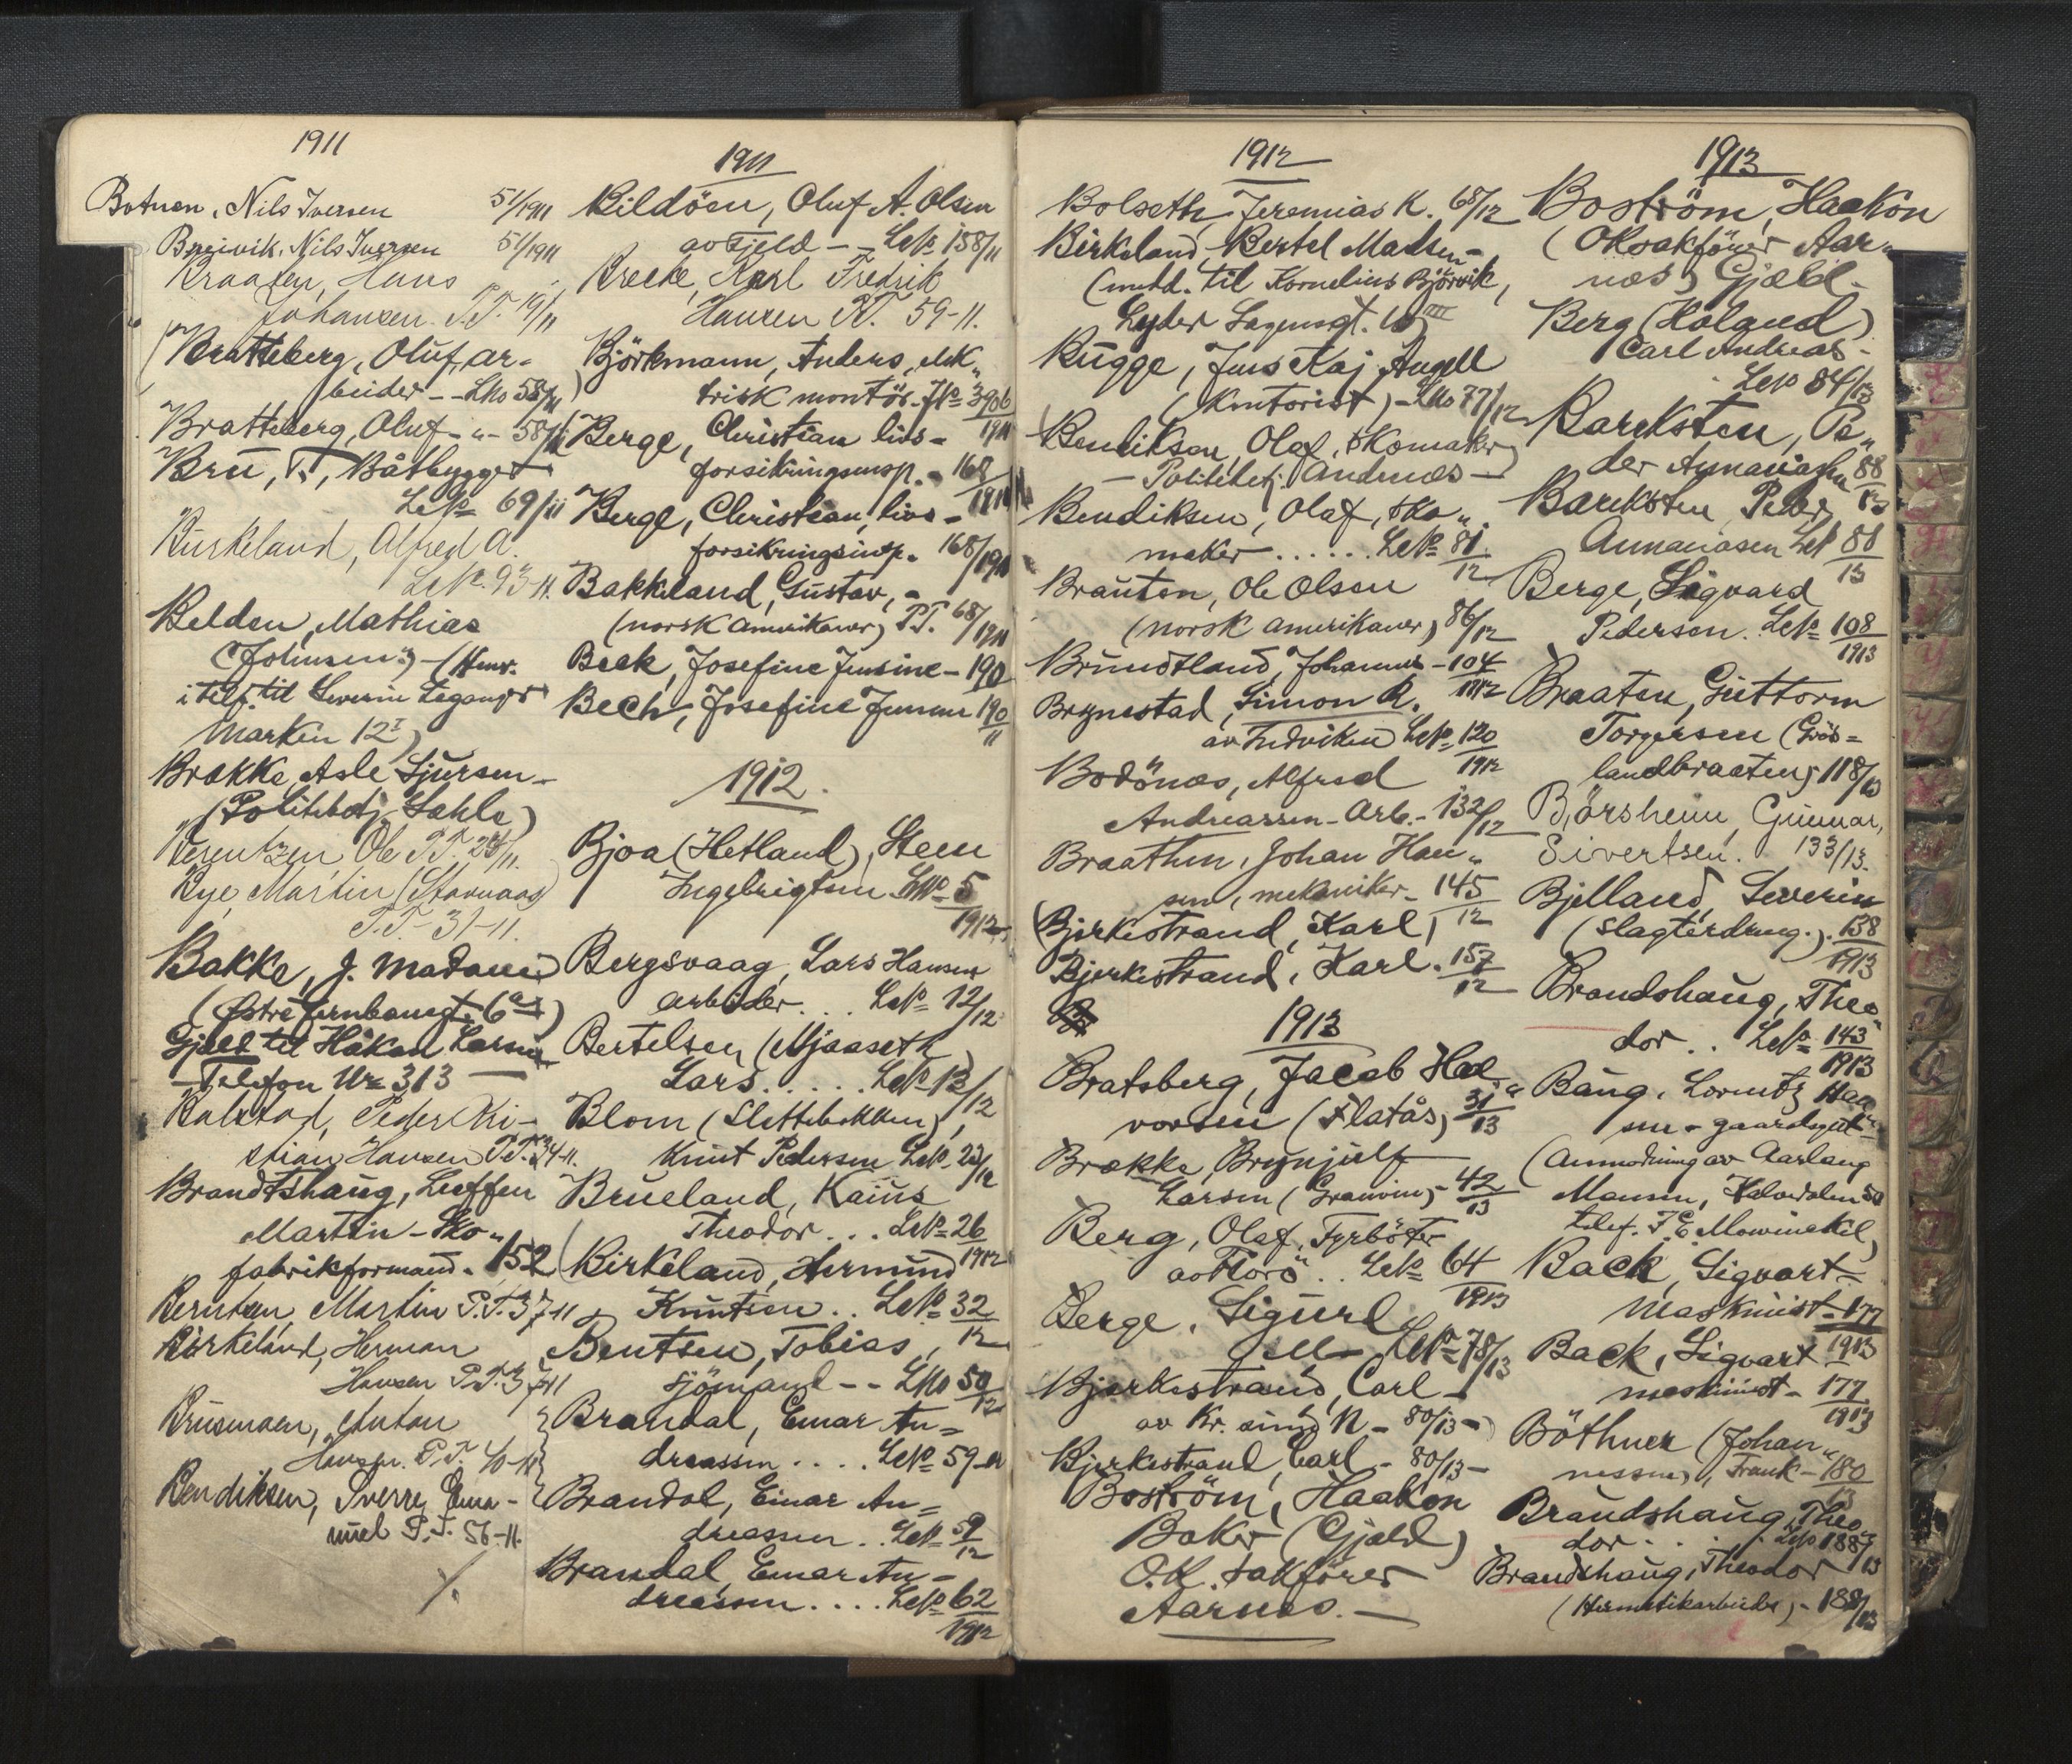 1911
Botnen, Nils Iversen 51/1911
Breivik, Nils Iversen 51/1911
Braaten, Hans
Johansen P.T. 19/11
Bratteberg, Oluf, ar-
beider - - LNo 58/11
Bratteberg, Oluf - " - 58/11
Bru, T., Båtbygger
LNo 69/11
Burkeland, Alfred A.
LNo. 93-11.
Belden, Mathias
(Johnsen) - (Henv.
i telf. til Severin Leganger
Marken 12 I)
Brække, Asle Sjursen -
(Politibetj. Sahle)
Berentzen Ole P.T. 28/11.
Bye, Martin (Stavnaas)
P.T. 31-11.
Bakke, J. Madam
(Østre Jernbanegt. 6 a)
Gjæld til Håkon Larsen
- Telefon Nr 313 -
Balstad, Peder Kri-
stian Hansen P.T. 34-11.
Brandtshaug, Leffen
Martin - Sko-
fabrikformand - 152
Berntsen, Martin P.T. 37-11
Birkeland, Herman
Hansen P.T. 37-11
Brusmoen, Anton
Hansen. P.T. 40-11
Bendiksen, Sverre Ema-
nuel P.T. 56-11.
1911
Bildöen, Oluf A. Olsen
av Fjeld - - LNo 158/11
Brecke, Karl Fredrik
Hansen P.T. 59-11.
Björkmann, Anders, elek-
trisk montör - JNo 3906
1911
Berge, Christian livs-
forsikringsinsp. - 168
1911
Berge, Christian, livs-
forsikringsinsp. 168/1911
Bakkeland, Gustav, -
(norsk amerikaner) P.T. 68/1911
Beck, Josefine Jensine - 190
Bech, Josefine Jensine 190
11
1912.
Bjoa (Hetland), Steen
Ingebrigtsen LNo 5
1912
Bergsvaag, Lars Hansen
arbeider . . . LNo 12/12
Bertelsen (Mjaaseth)
Lars . . . . . LNo 13/12
Blom (Slettebakken),
Knut Pedersen LNo 23/12
Brueland, Kaius
Theodor . . . LNo 26
1912
Birkeland, Hermund
Knutsen . . LNo 32
12
Bentsen, Tobias,
sjömand - - LNo 50
12
Brandal, Einar An-
dreassen . . . . LNo 59-12
Brandal, Einar An-
dreassen . . LNo 59
12
Brandal, Einar An-
dreassen . . . . LNo 62
1912
1912
Bolseth, Jeremias K. 68/12
Birkeland, Bertel Madsen -
(medd. til Kornelius Björvik,
Lyder Sagensgt. 10 III
Bugge, Jens Kaj Angell
(Kontorist) - LNo 77/12
Bendiksen, Olaf, skomaker
- Politibetj. Andenæs -
Bendiksen, Olaf, sko-
maker . . . . . . LNo 81
12
Brauten, Ole Olsen
(norsk amerikaner) 86/12
Brundtland, Johannes - 104
1912
Brynestad, Simon R.
av Indviken LNo 120
1912
Bodönæs, Alfred
Andreassen - Arb. - 132/12
Braathen, Johan Han-
sen, mekaniker - 145
12
Bjerkestrand, Karl,
Bjerkestrand, Karl. 157
12
1913
Bratsberg, Jacob Hal-
vorsen (Flatås) 31
13
Brække, Brynjulf
Larsen (Granvin) - 42
13
Berg, Olaf, Fyrböter
av Florö . . LNo 64
1913
Berge, Sigurd
M - LNo 78/13
Bjerkestrand, Carl -
av Kr. sund N - 80/13 -
Bjerkestrand, Carl - 80/13 -
Boström, Haakon
Baker (Gjæld)
O.R. sakförer
Aarnes. -
1913
Boström, Haakon
(ORsakförer Aar-
næs) Gjæld -
Berg (Höland)
Carl Andreas -
LNo 84/13
Bareksten, Pe-
der Annaniasen 88
13
Bareksten, Peder
Annaniasen LNo 88
13
Berge, Sigvard
Pedersen. LNo 108
1913
Braaten, Guttorm
Torgersen (Grös-
landbraaten) 118/13
Börsheim, Gunnar,
Sivertsen. 133/13.
Bjelland, Severin
(slagterdreng.) 138
1913
Brandshaug, Theo-
dor . . LNo 143
1913
Bang, Lorentz Haa-
sen - gaardsgut -
(Anmodning av Aarlang
Monsen, Kalvedalen 50
telef. J. E. Mowinckel)
Back, Sigvart -
maskinist - 177
1913
Back, Sigvart
maskinist - 177
1913
Böthner (Johan-
nessen), Frank - 180
13
Brandshaug, Theo-
dor . . . LNo 188/13
Brandshaug, Theodor
(Hermetikarbeider) - 188/13